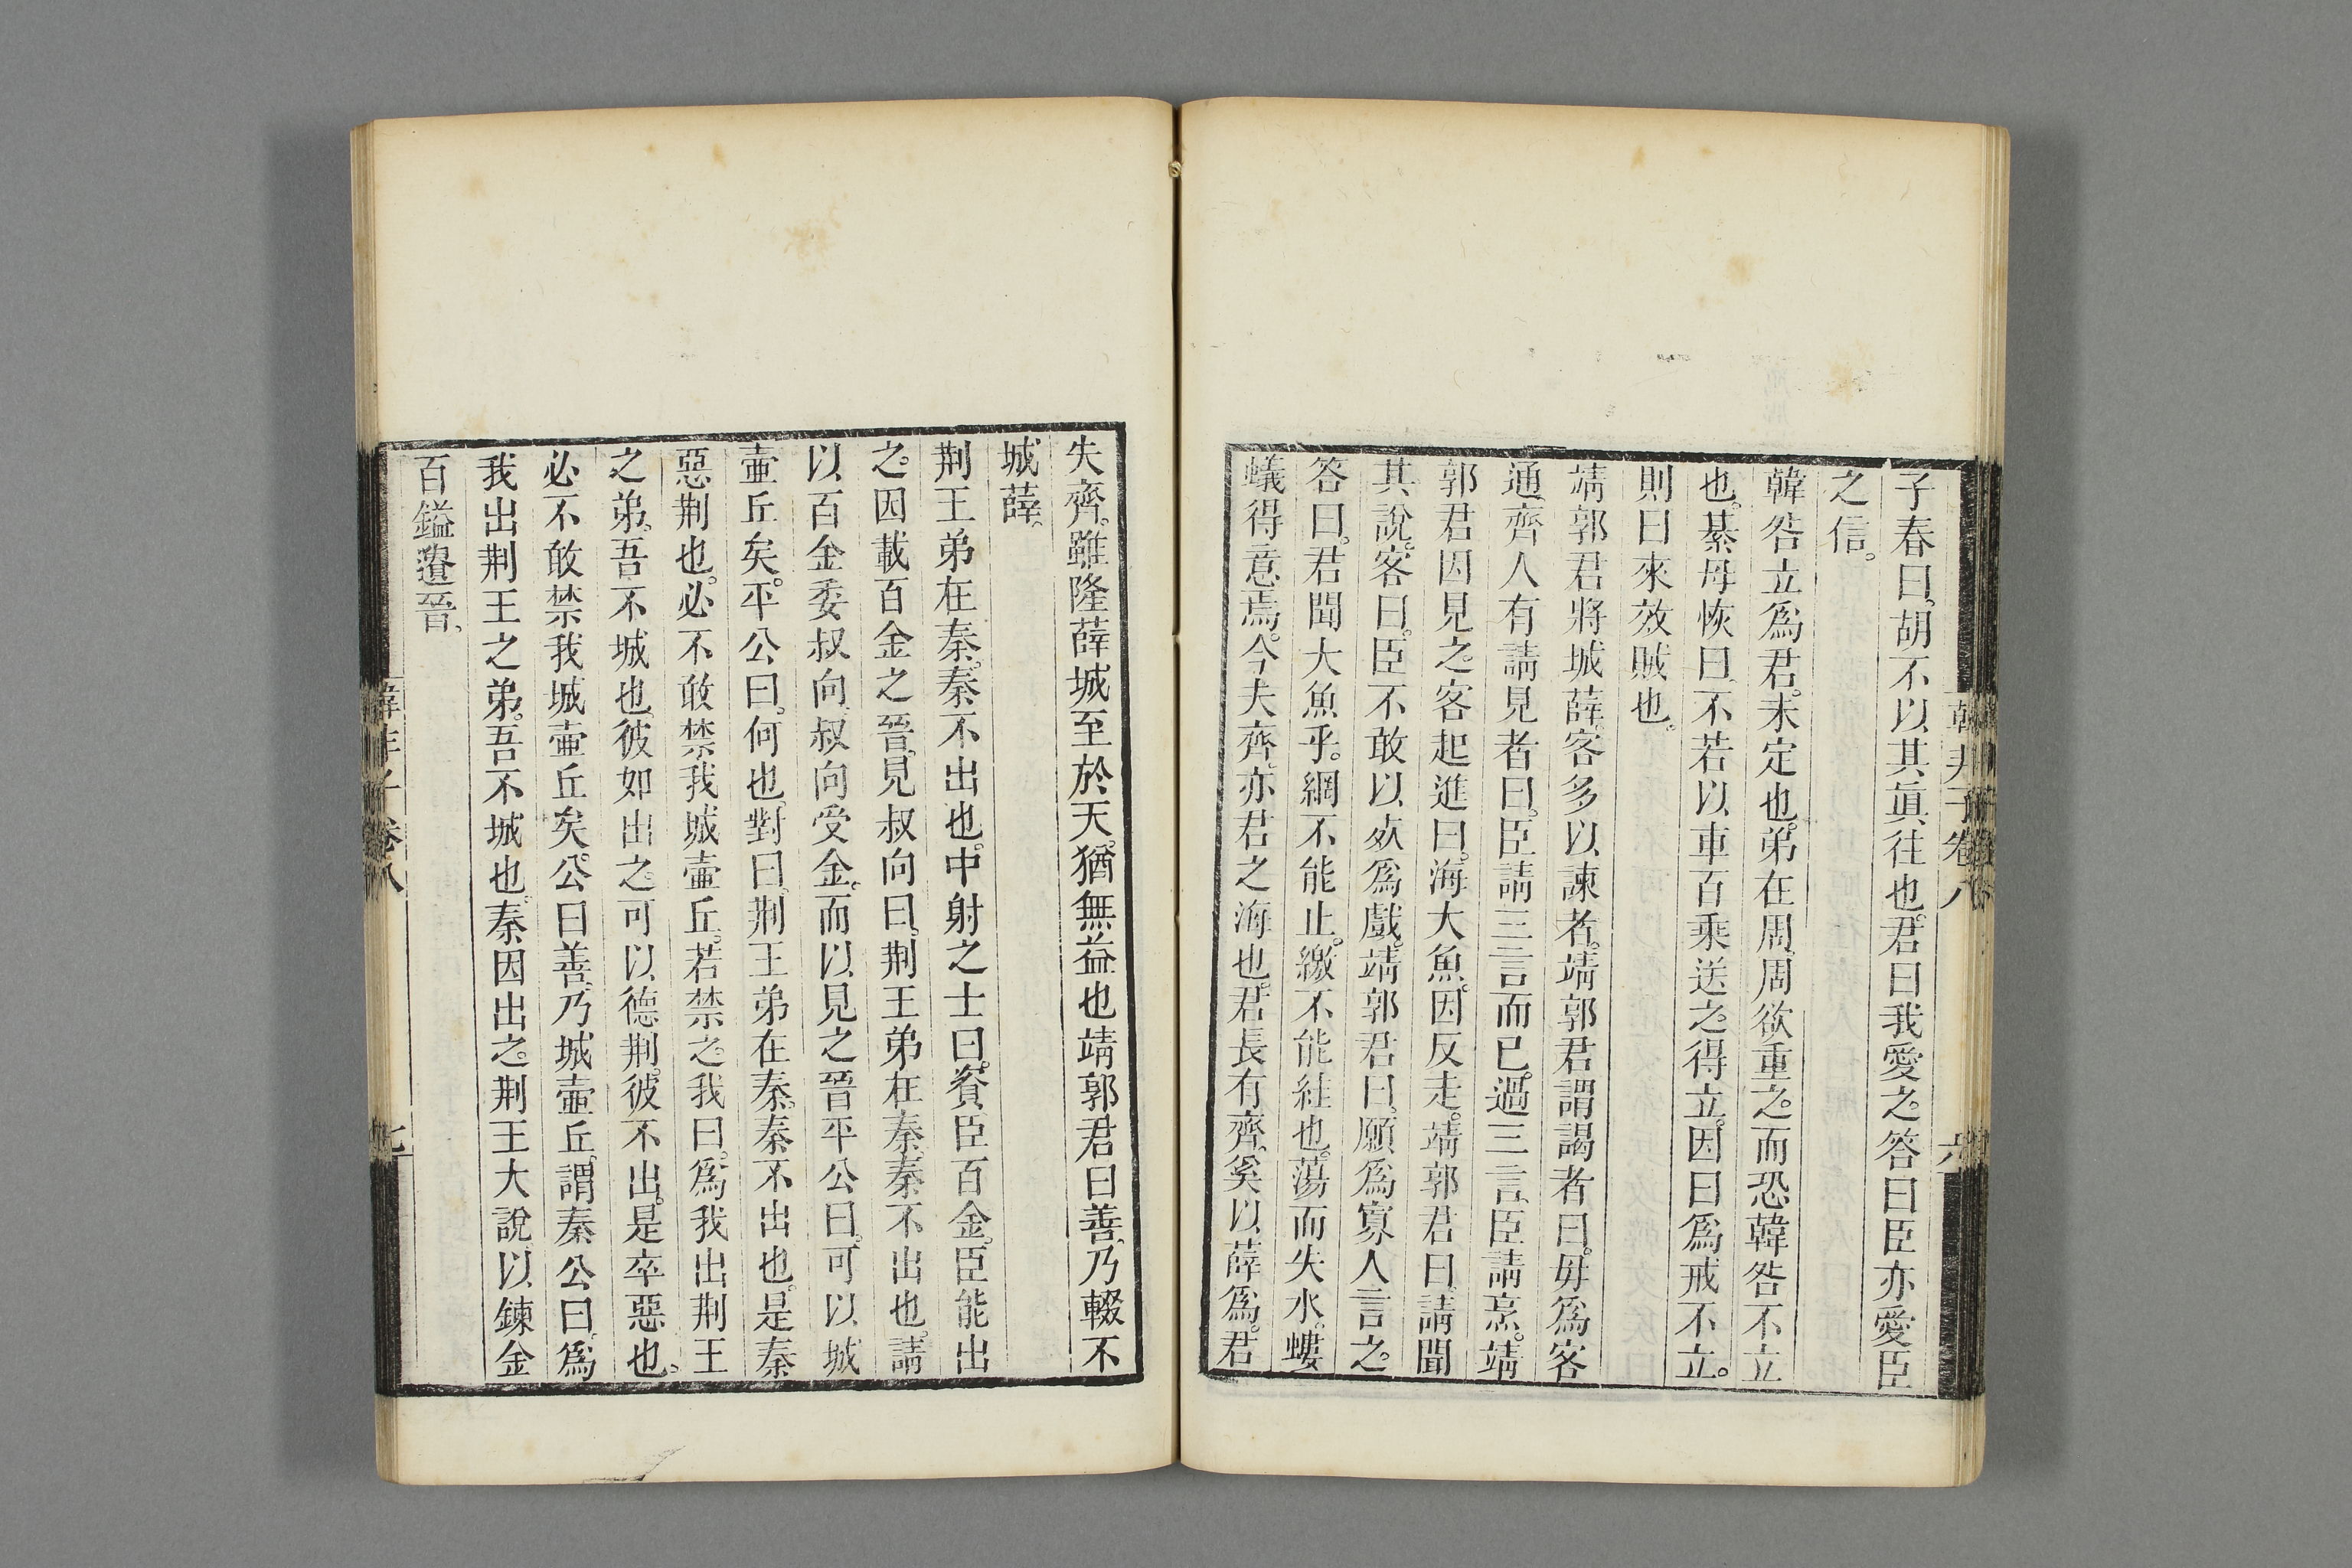 韓非子卷八
六
子春曰。胡不以其眞往也。君曰我愛之。答曰臣亦愛臣
之信。
韓咎立爲君。未定也。弟在周。周欲重之。而恐韓咎不立
也。綦毋恢曰。不若以車百乘送之。得立。因曰爲戒。不立。
則曰來效賊也。
靖郭君將城薛。客多以諫者。靖郭君謂謁者曰。毋爲客
通。齊人有請見者曰。臣請三言而已。過三言。臣請烹。靖
郭君因見之。客起進曰。海大魚。因反走。靖郭君曰。請聞
其說。客曰。臣不敢以死爲戲。靖郭君曰。願爲寡人言之。
答曰。君聞大魚乎。網不能止。繳不能絓也。蕩而失水。螻
蟻得意焉。今夫齊。亦君之海也。君長有齊。奚以薛爲。君
失齊。雖隆薛城至於天。猶無益也靖郭君曰善。乃輟不
城薛。
荆王弟在秦。秦不出也。中射之士曰。資臣百金。臣能出
之。因載百金之晉。見叔向曰。荆王弟在秦。秦不出也。請
以百金委叔向。叔向受金。而以見之晉平公曰。可以城
壷丘矣。平公曰。何也。對曰。荆王弟在秦。秦不出也。是秦
惡荆也。必不敢禁我城壷丘。若禁之。我曰。爲我出荆王
之弟。吾不城也。彼如出之。可以德荆。彼不出。是卒惡也。
必不敢禁我城壷丘矣。公曰善。乃城壷丘。謂秦公曰。爲
我出荆王之弟。吾不城也。秦因出之。荆王大說。以鍊金
百鎰遺晉。
韓非子卷八
七